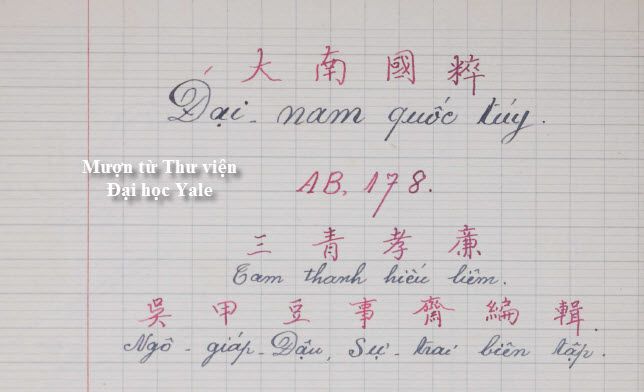 大南國粹
Đại-nam quốc túy.
Mượn từ Thư viện
Đại học Yale
AB, 178.
三青孝廉
Tam thanh hiếu liêm.
吳甲豆事齋編輯.
Ngô-giáp-Đậu, Sự-trai biên tập.